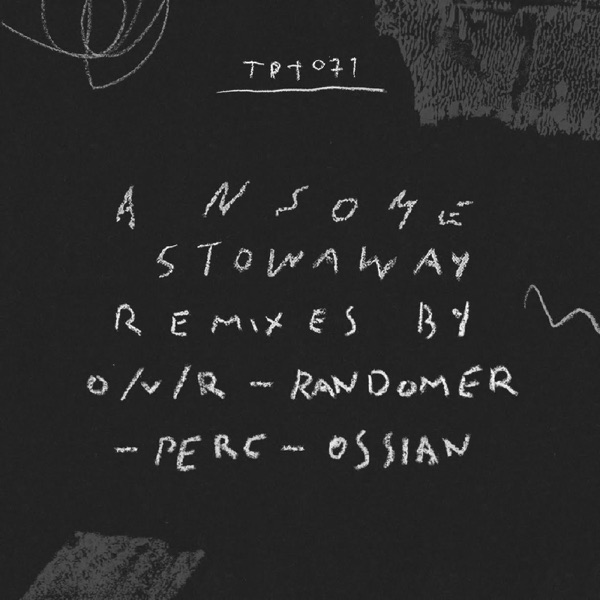 TPT071
ANSOME
STOWAWAY
REMIXES BY
O/V/R - RANDOMER
- PERC - OSSIAN